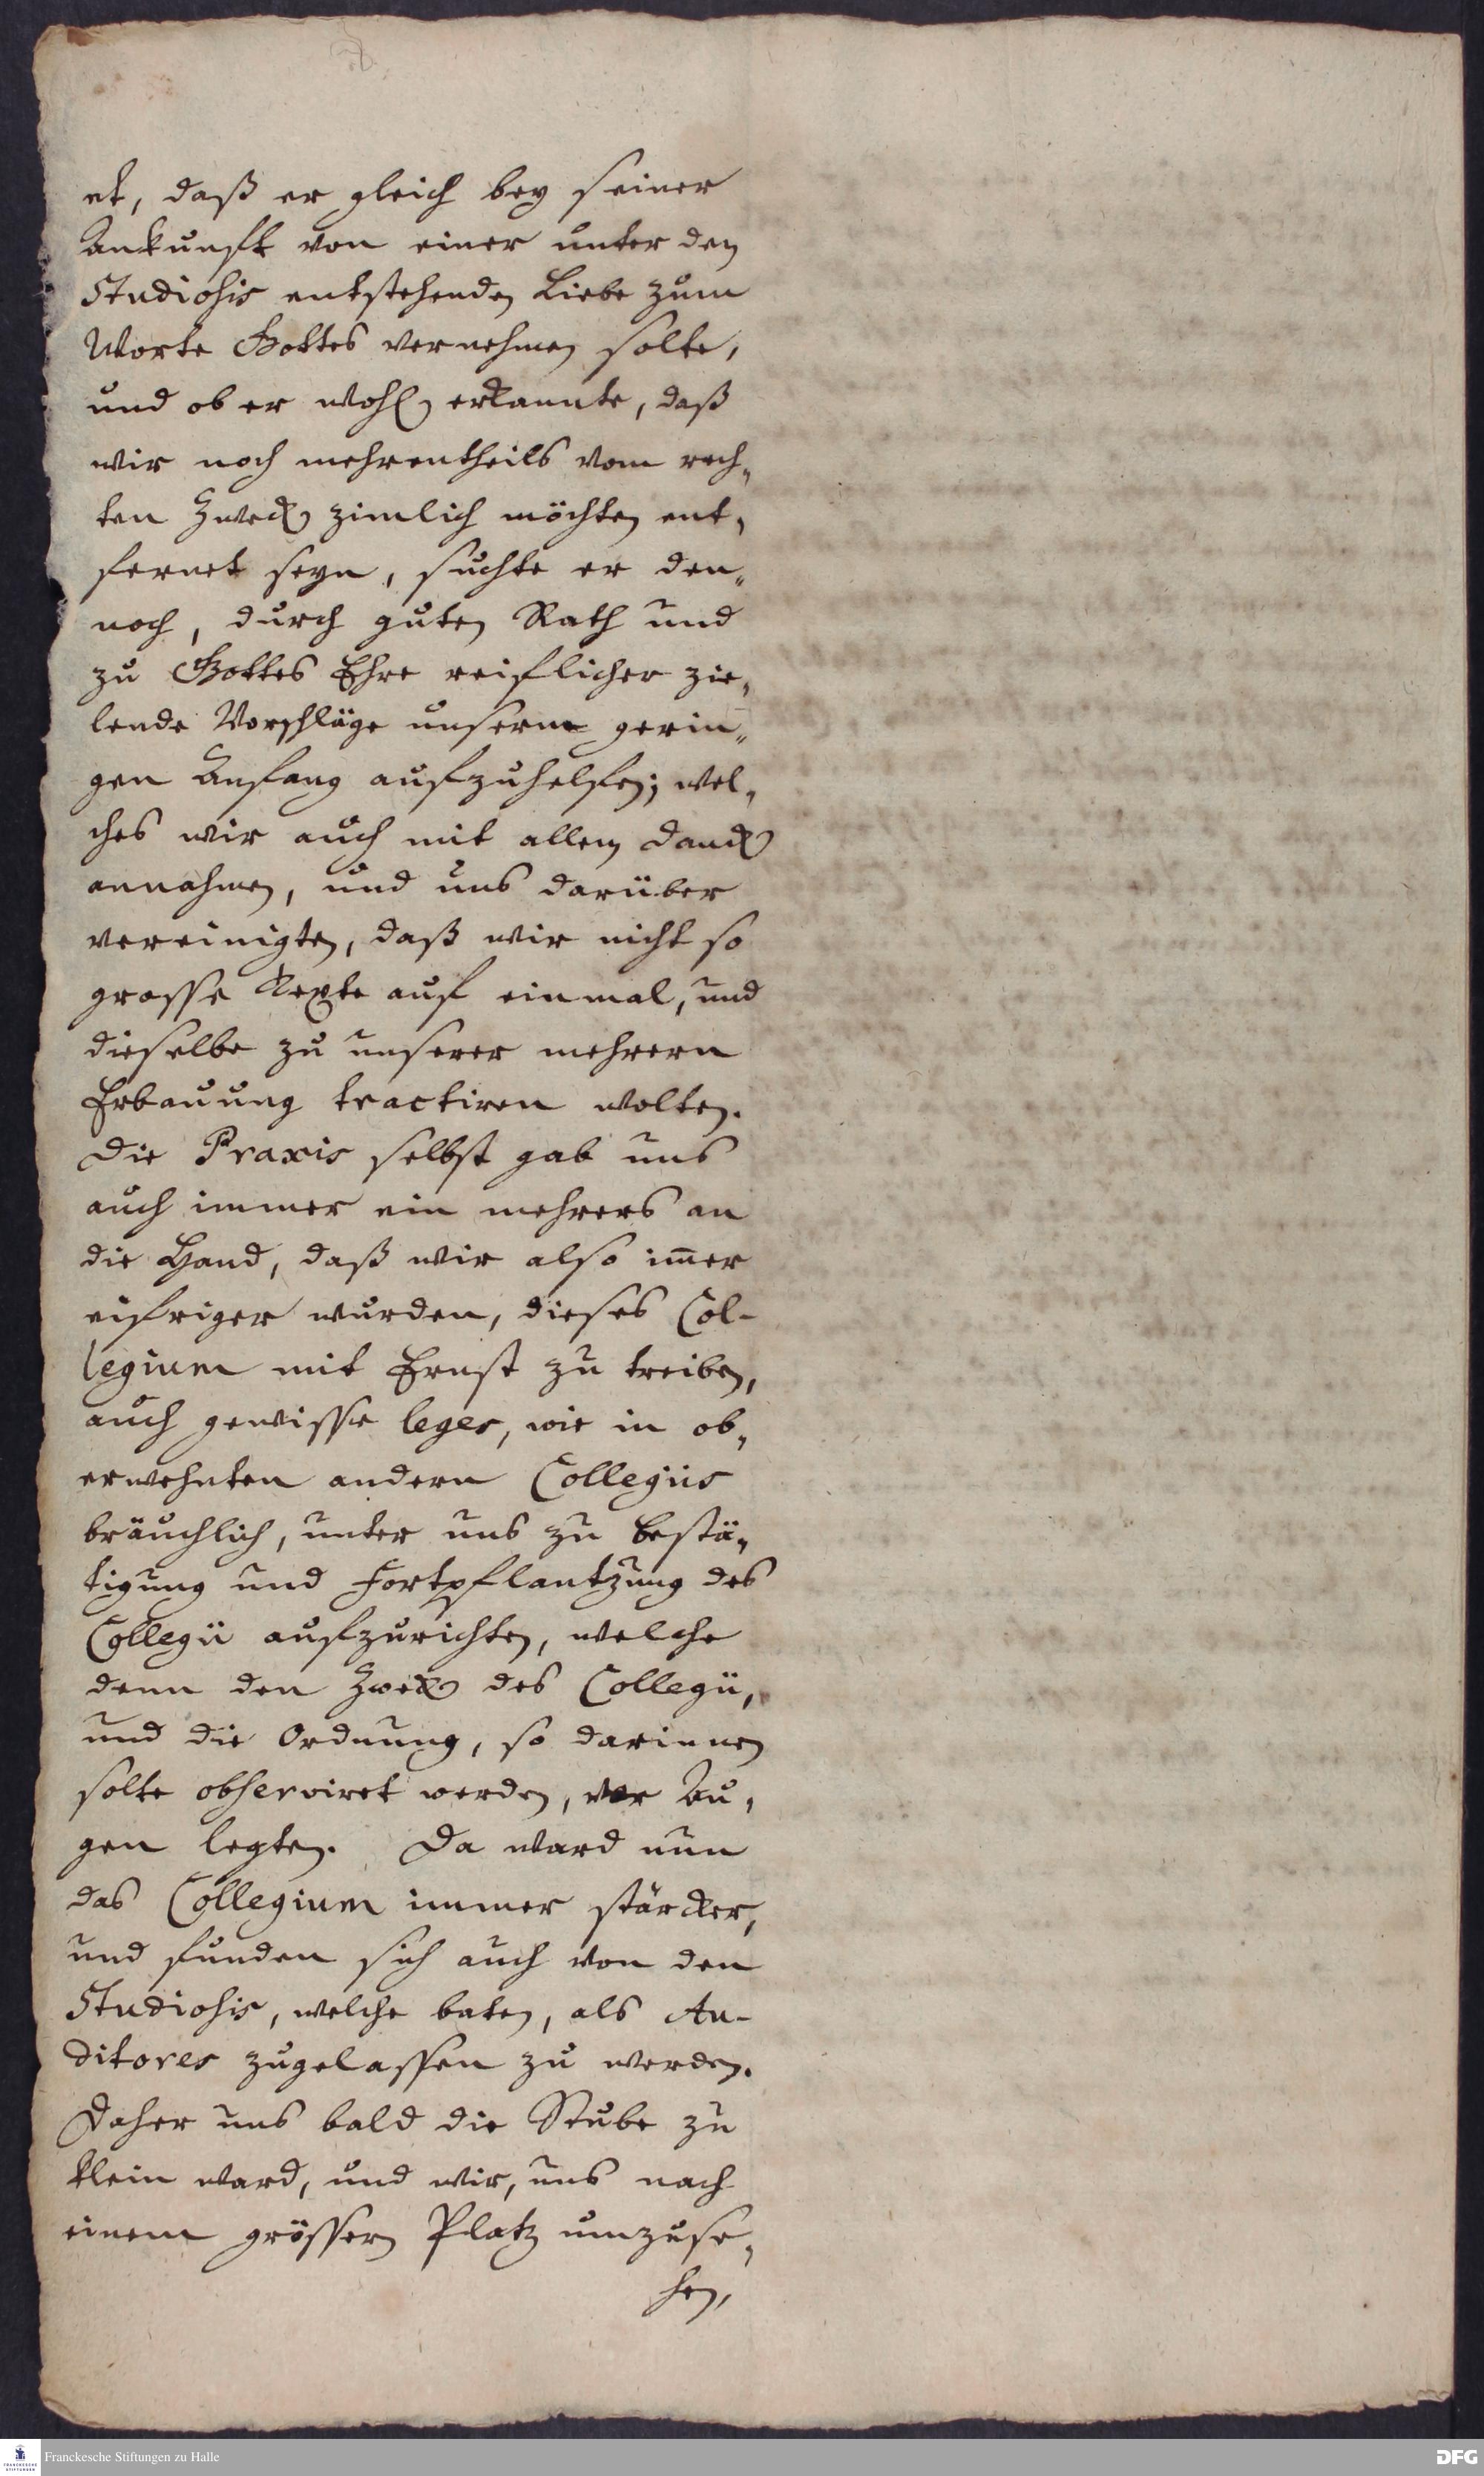 et, daß er gleich bey seiner
Ankunfft von einer unter den
Studiosis entstehenden Liebe zum
Worte Gottes vernehmen solte,
und ob er wohl erkannte, daß
wir noch mehrentheils vom rech„
ten Zweck zimlich möchten ent„
fernet seyn, suchte er den„
noch, durch guten Rath und
zu Gottes Ehre reiflicher zie„
lende Vorschläge unserm gerin„
gen Anfang aufzuhelfen; wel„
ches wir auch mit allem Danck
annahmen, und uns darüber
vereinigten, daß wir nicht so
grosse Texte auf einmal, und
dieselbe zu unserer mehrern
Erbauung tractiren wolten.
Die Praxis selbst gab uns
auch immer ein mehrers an
die Hand, daß wir also im̄er
eifriger wurden, dieses Col-
legium mit Ernst zu treiben,
auch gewisse leges, wie in ob„
erwehnten andern Collegiis
bräuchlich, unter uns zu bestä„
tigung und Fortpflantzung des
Collegii aufzurichten, welche
denn den Zweck des Collegii,
und die Ordnung, so darinnen
solte observiret werden, vor Au„
gen legten. Da ward nun
das Collegium immer stärcker,
und funden sich auch von den
Studiosis, welche baten, als Au-
ditores zugelassen zu werden.
Daher uns bald die Stube zu
klein ward, und wir, uns nach
einem grössern Platz umzuse„
hen,
Franckesche Stiftungen zu Halle
FRANCKESCHE
STIFTUNGEN
DFG